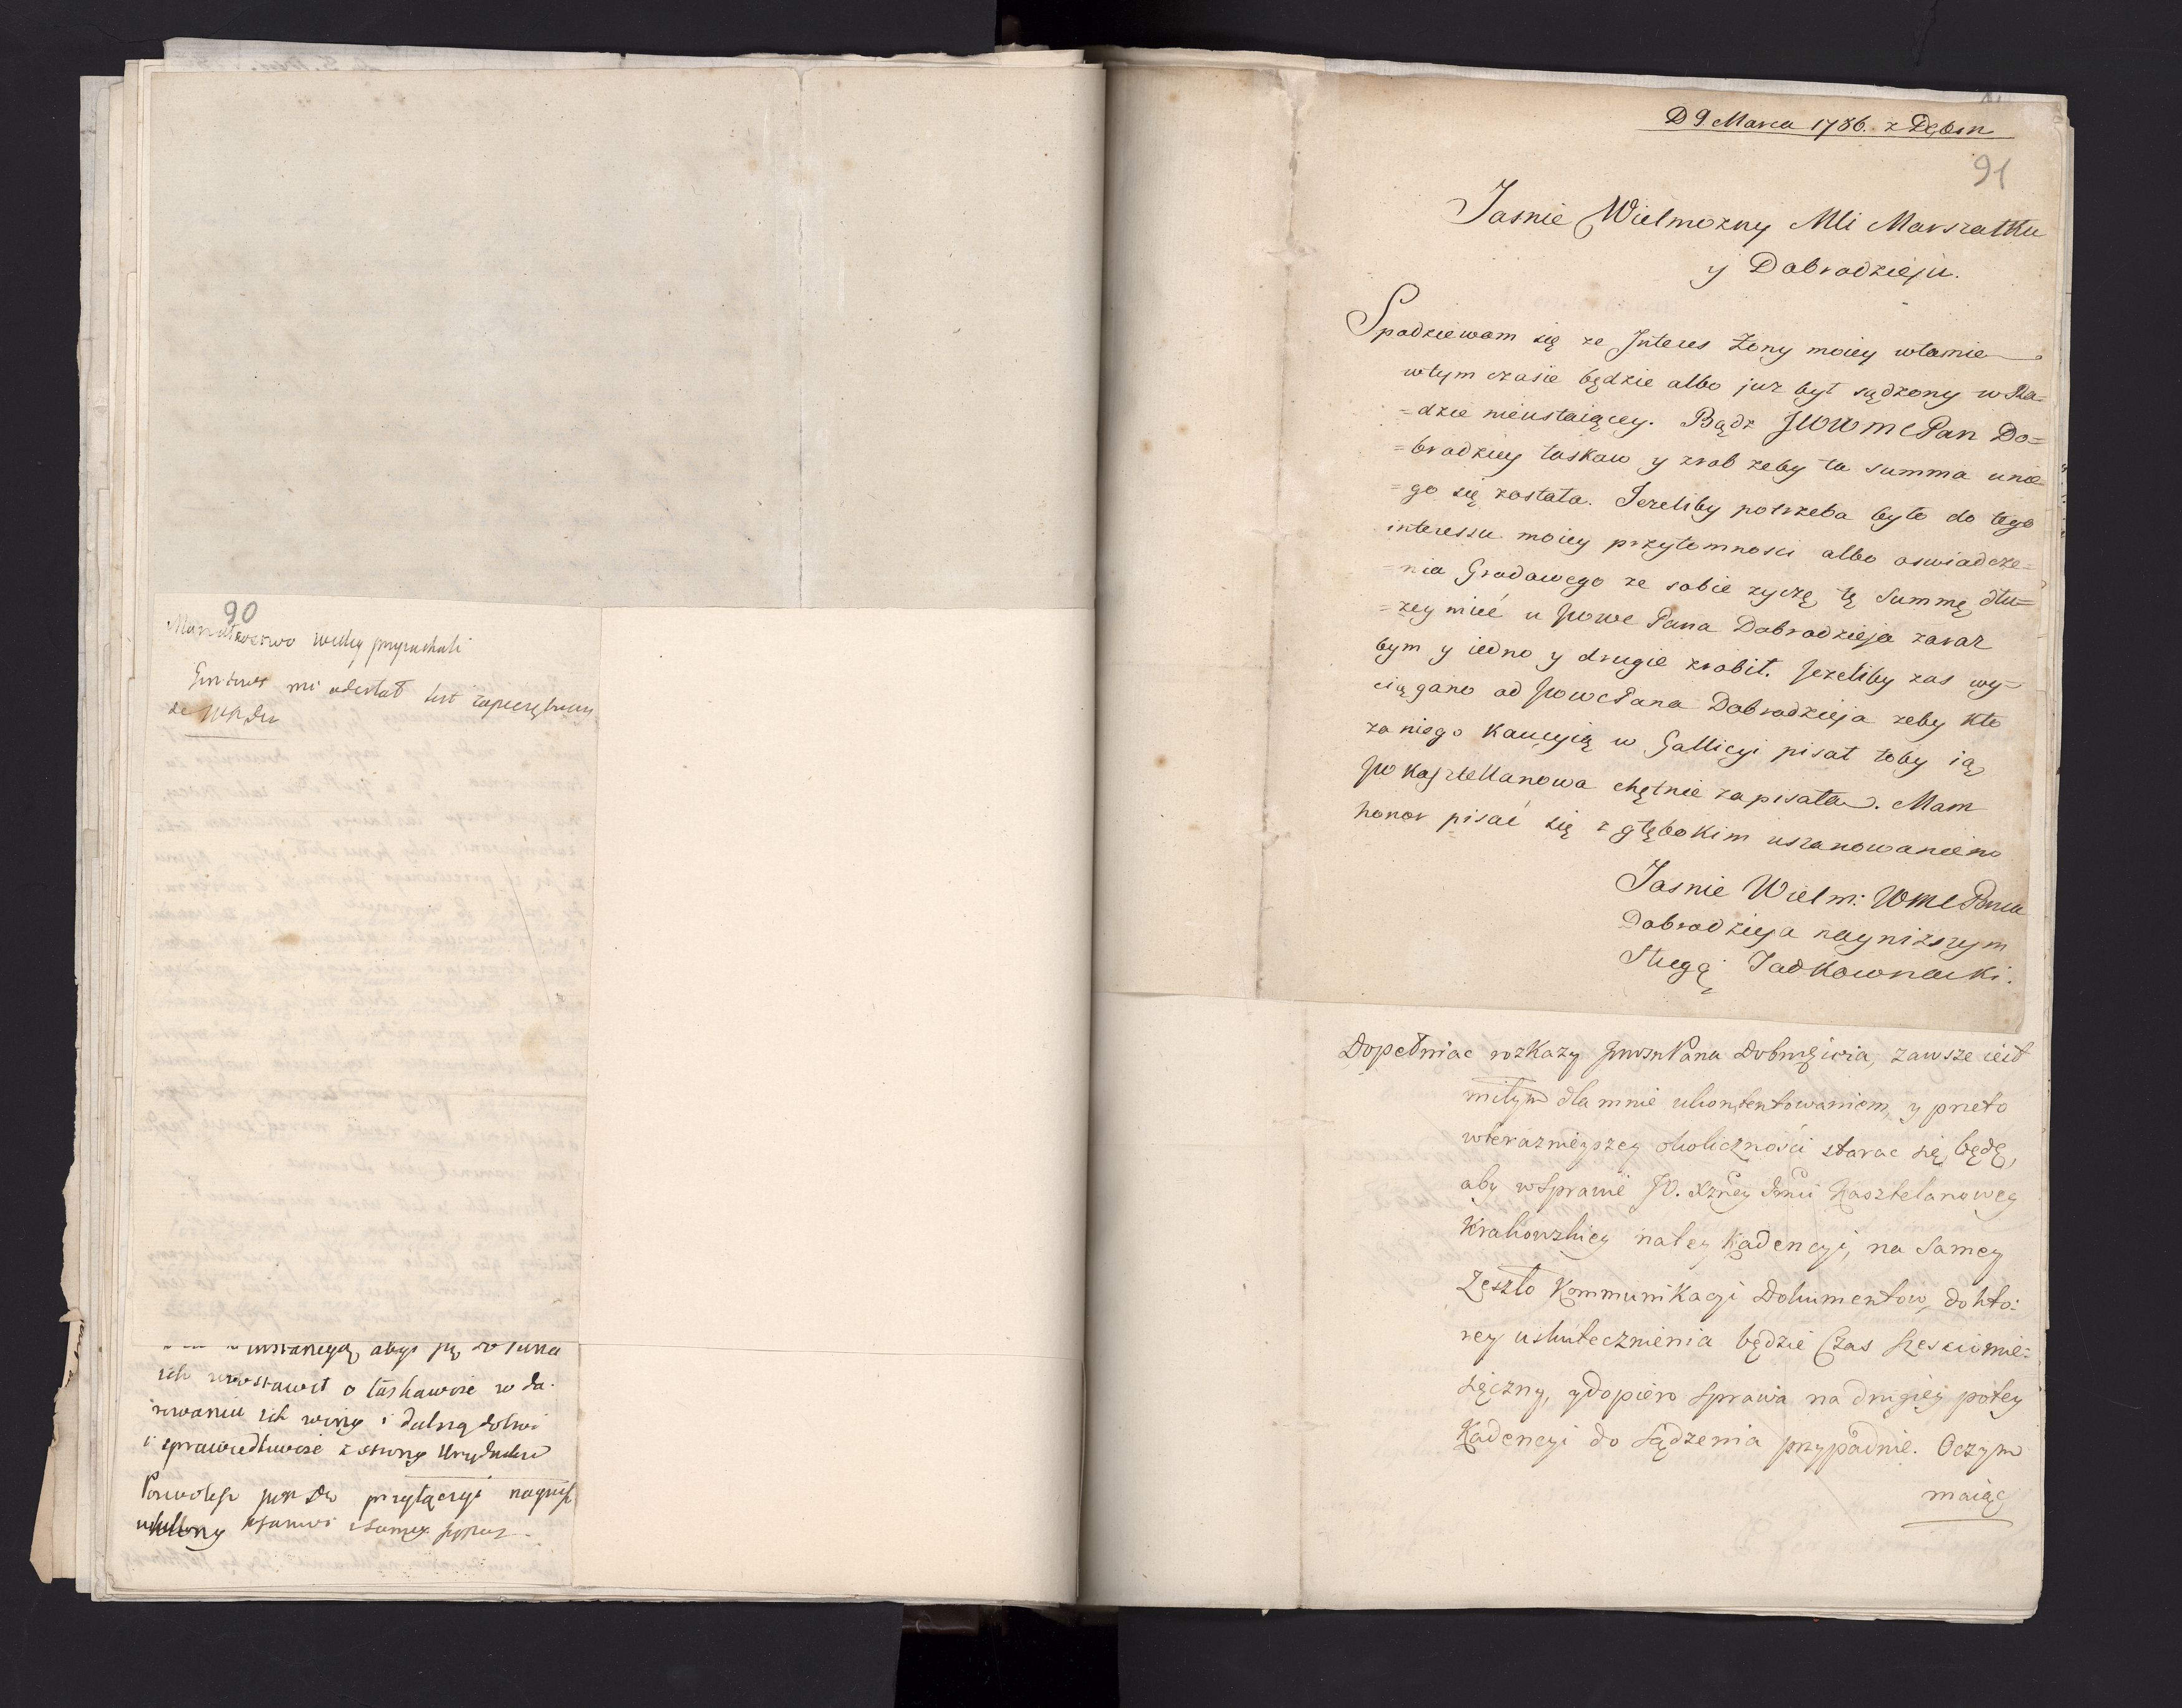 90
wielcy przyiechali
mi odesłał list zapieczętowany
ze
abyś się do
ich wstawił o łaskawość w da-
rowaniu ich winy i dalszą
i sprawiedliwość z strony
Pozwolisz przyłączyć
D 9 Marca 1786. z Dębin
91
Jasnie Wielmozny Mci Marszałku
y Dobrodzieju.
Spodziewam się ze Interes Zony moiey własnie
w tym czasie będzie albo juz był sądzony w Ra=
=dzie nieustaiącey. Bądz JWWMcPan Do=
=brodziey łaskaw y zrob zeby ta summa u nie=
=go się została. Jezeliby potrzeba było do tego
interessu moiey przytomnosci albo oswiadcze=
=nia Grodowego ze sobie zyczę tę Summę dłu=
=zey mieć u JWWc Pana Dobrodzieja zaraz
bym y iedno y drugie zrobił. Jezeliby zas wy=
ciągano od JWWcPana Dobrodzieja zeby kto
za niego kaucyią w Gallicyi pisał toby ią
JW Kasztellanowa chętnie zapisała. Mam
honor pisać się z głębokim uszanowaniem
Jasnie Wielm: WMcPana
Dobrodzieja nayniższym
Sługą Jadkownacki.
Dopełniac rozkazy Pana Dobrodzieia, zawsze iest
miłym dla mnie ukontentowaniem, y przeto
wteraznieyszey okolicznosci starac się będę,
aby wsprawie JO. Xzney Jmci Kasztelanowey
Krakowskiey na tey Kadencyi, na samey
zeszło Kommunikacyi Dokumentow, do kto:
rey uskutecznienia będzie Czas szesciomie:
sięczny, y dopiero sprawa na drugiey potey
Kadencyi do sądzenia przypadnie. O czym
maiąc